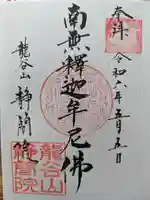 奉拝
令和六年五月五日
南無釋迦牟尼佛
龍谷山
静簡院
龍谷山
静簡院